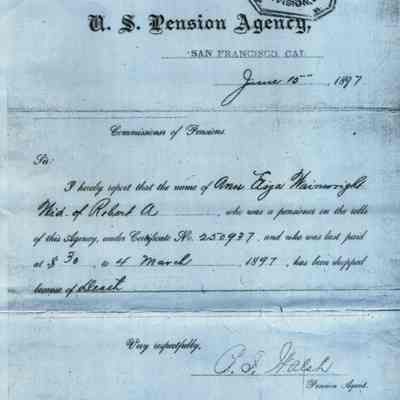 U. S. Pension Agency,
SAN FRANCISCO, CAL.
June 15 , 1897
Commissioner of Pensions.
Sir:
I hereby report that the name of Ann Eliza Wainwright
Wid. of Robert A , who was a pensioner on the rolls
of this Agency, under Certificate No. 250937, and who was last paid
at $ 30 to 4 March , 1897, has been dropped
because of Death
Very respectfully,
Walsh
Pension Agent.